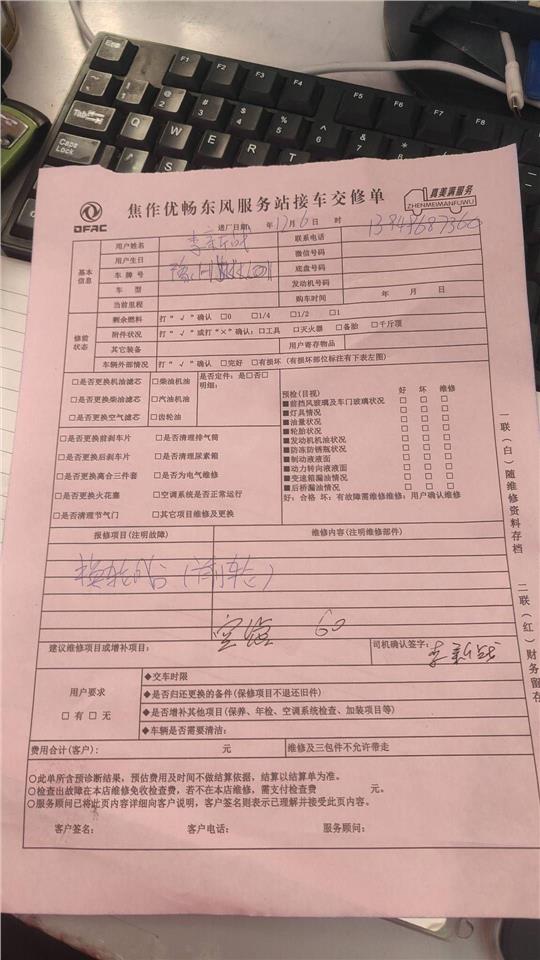 焦作优畅东风服务站接车交修单
DFAC
真美满服务
ZHENMEIMANFUWU
进厂日期: 年 17/6 日 时
用户姓名
联系电话 13848687360
基本信息
用户生日
微信号码
车 牌 号
底盘号码
车 型
发动机号码
当前里程
购车时间 年 月 日
修前状态
剩余燃料 打“√”确认 □0 □1/4 □1/2 □1
附件状况 打“√”或打“×”确认:□工具 □灭火器 □备胎 □千斤顶
其它装备 用户寄存物品
车辆外部情况 打“√”确认 □完好 □有损坏(有损坏部位标注有下表左图)
□是否更换机油滤芯 □柴油机油
□是否更换柴油滤芯 □汽油机油
□是否更换空气滤芯 □齿轮油
是否定件:是□否□
明细:
□是否更换前刹车片 □是否清理排气筒
□是否更换后刹车片 □是否清理尿素箱
□是否更换离合三件套 □是否为电气维修
□是否更换火花塞 □空调系统是否正常运行
□是否清理节气门 □其它项目维修及更换
预检(目视) 好 坏 维修
■前挡风玻璃及车门玻璃状况 □ □ □
■灯具情况 □ □ □
■油量状况 □ □ □
■轮胎状况 □ □ □
■发动机机油状况 □ □ □
■防冻防锈瓶状况 □ □ □
■制动液液面 □ □ □
■动力转向液液面 □ □ □
■变速箱漏油情况 □ □ □
■后桥漏油情况 □ □ □
好:合格 坏:有故障需维修维修:用户确认维修
报修项目(注明故障) 维修内容(注明维修部件)
60
建议维修项目或增补项目:
司机确认签字:
用户要求
□有 □无
◆交车时限
◆是否归还更换的备件(保修项目不退还旧件)
◆是否增补其他项目(保养、年检、空调系统检查、加装项目等)
◆车辆是否需要清洁:
费用合计(客户): 元 维修及三包件不允许带走
○此单所含预诊断结果,预估费用及时间不做结算依据,结算以结算单为准。
○检查出故障在本店维修免收检查费,若不在本店维修,需支付检查费 元。
○服务顾问已将此页内容详细向客户说明,客户签名则表示已理解并接受此页内容。
客户签名: 客户电话: 服务顾问:
一联(白)随维修资料存档
二联(红)财务留存
Esc
F1
F2
F3
F4
F5
F6
F7
F8
Tab
Q
W
E
R
T
Caps Lock